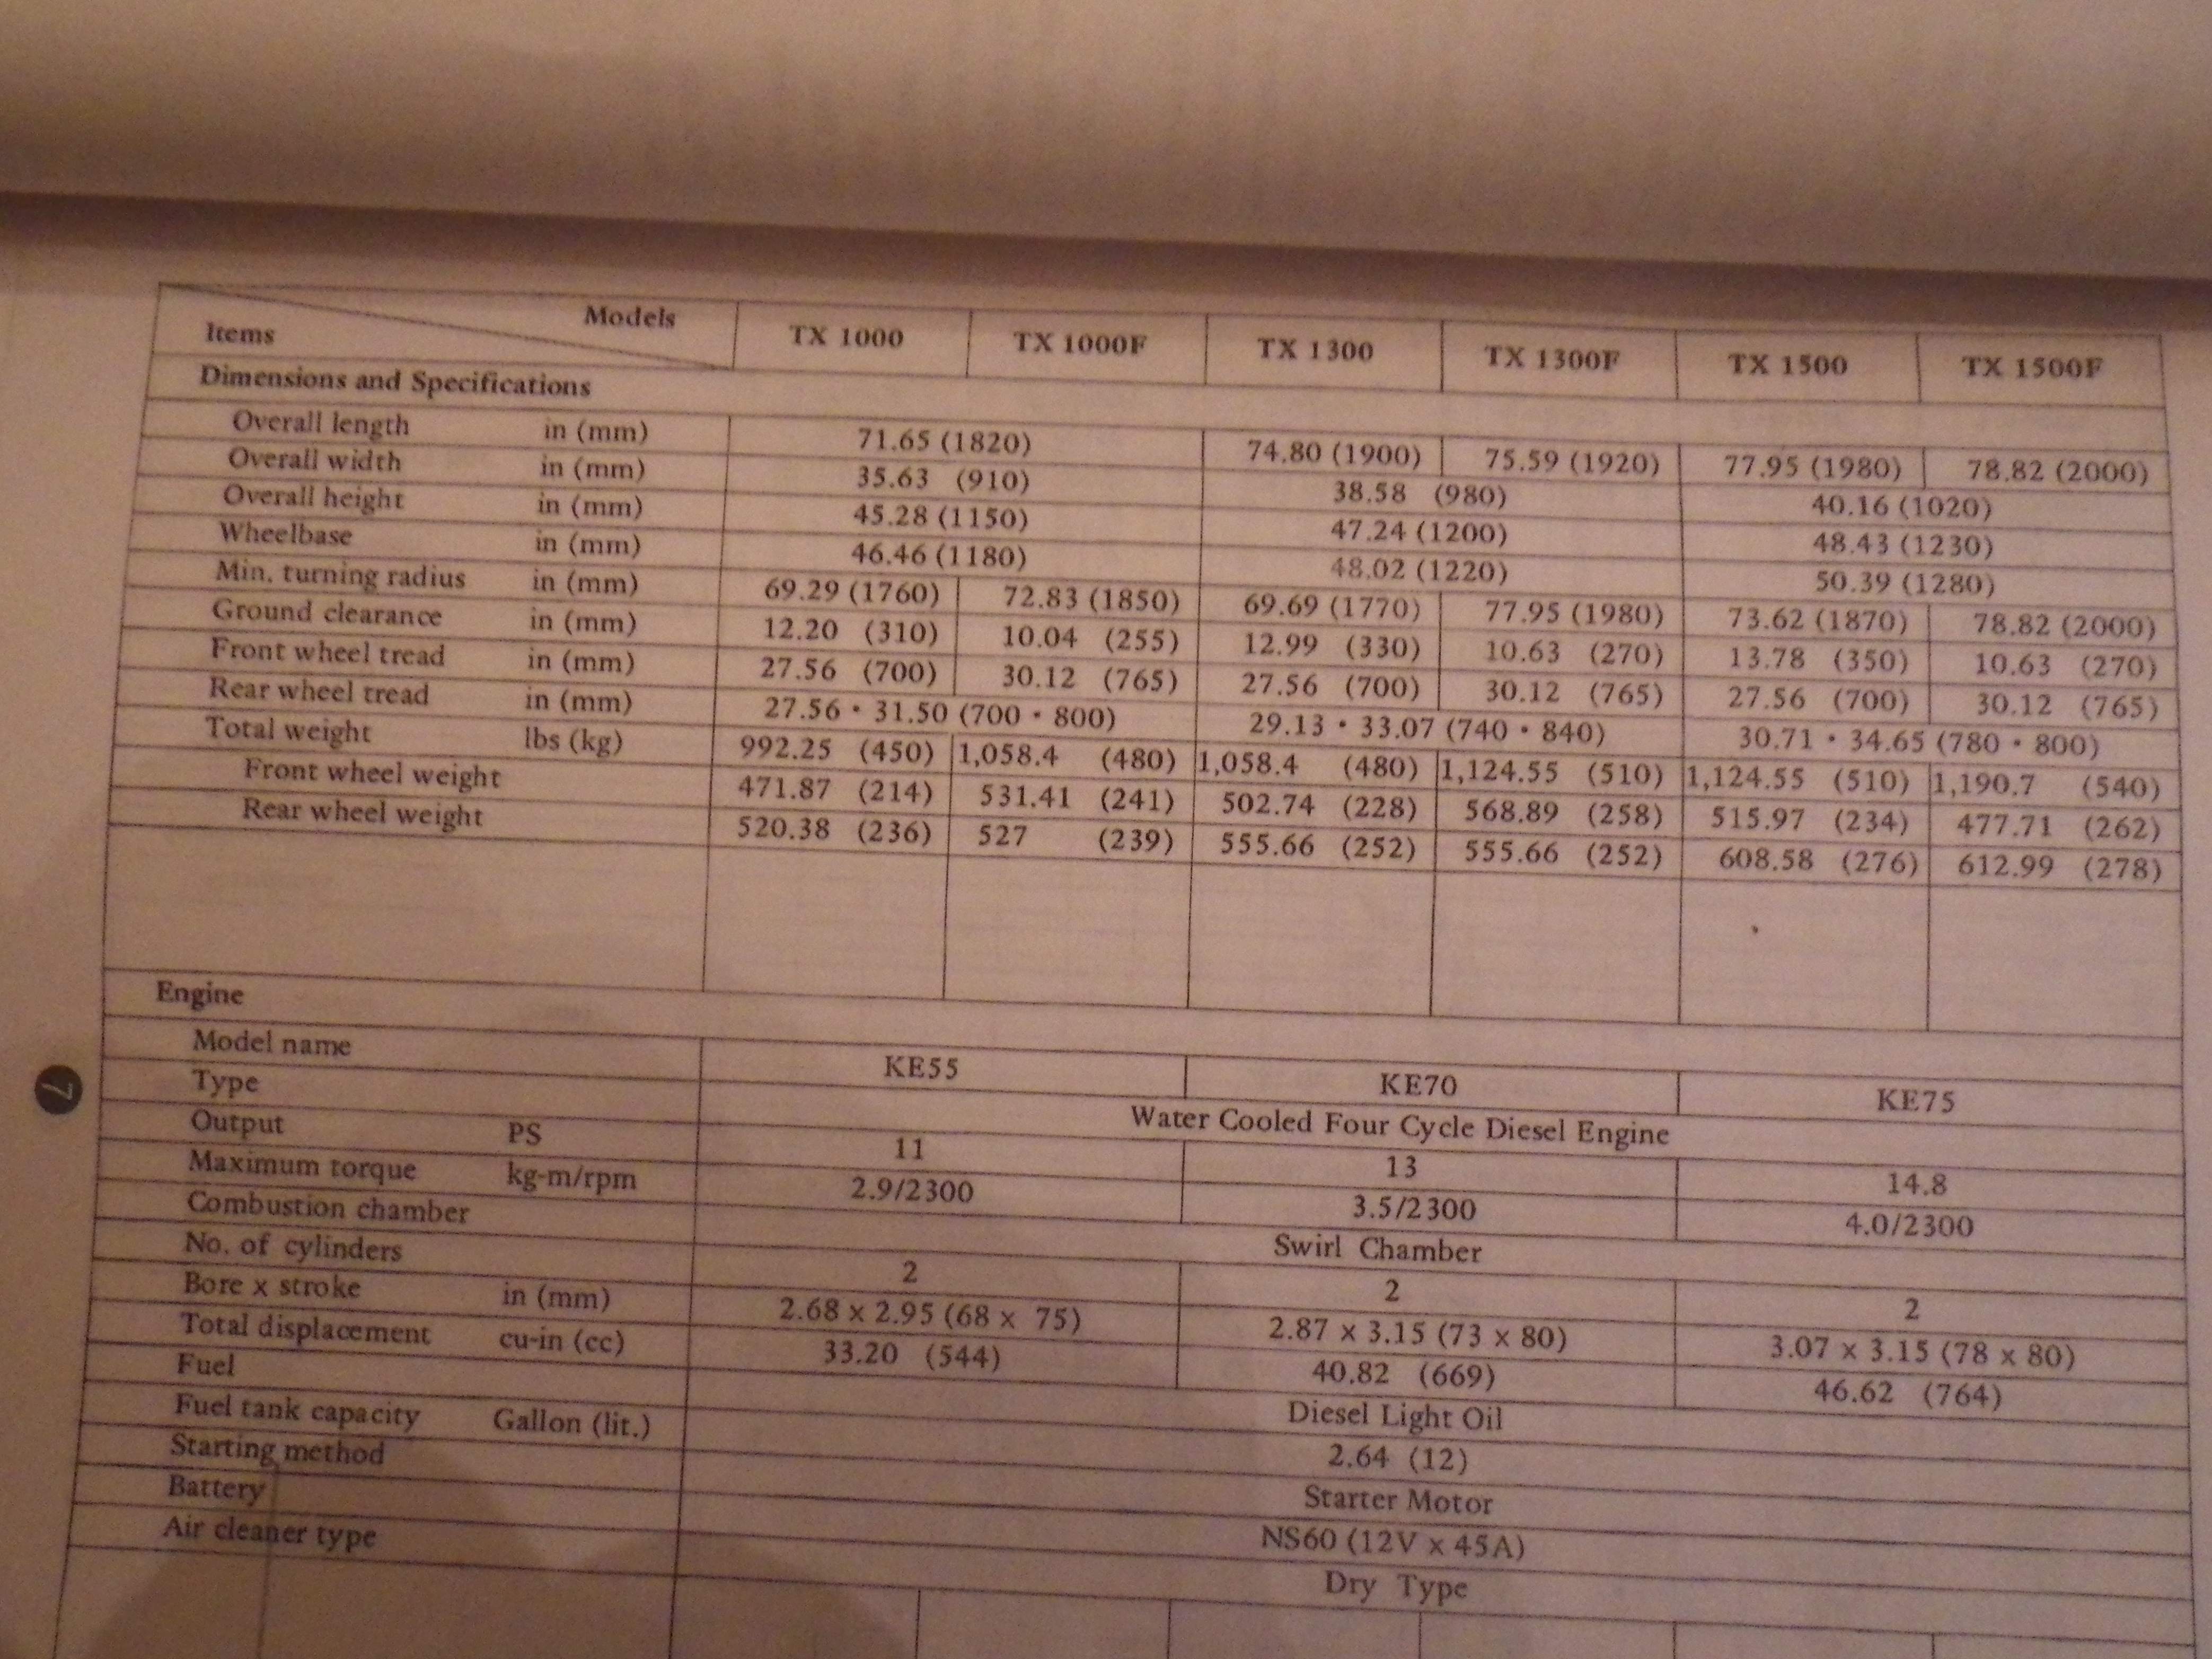 Models
Items TX 1000 TX 1000F TX 1300 TX 1300F TX 1500 TX 1500F
Dimensions and Specifications
Overall length in (mm) 71.65 (1820) 74.80 (1900) 75.59 (1920) 77.95 (1980) 78.82 (2000)
Overall width in (mm) 35.63 (910) 38.58 (980) 40.16 (1020)
Overall height in (mm) 45.28 (1150) 47.24 (1200) 48.43 (1230)
Wheelbase in (mm) 46.46 (1180) 48.02 (1220) 50.39 (1280)
Min. turning radius in (mm) 69.29 (1760) 72.83 (1850) 69.69 (1770) 77.95 (1980) 73.62 (1870) 78.82 (2000)
Ground clearance in (mm) 12.20 (310) 10.04 (255) 12.99 (330) 10.63 (270) 13.78 (350) 10.63 (270)
Front wheel tread in (mm) 27.56 (700) 30.12 (765) 27.56 (700) 30.12 (765) 27.56 (700) 30.12 (765)
Rear wheel tread in (mm) 27.56 · 31.50 (700 · 800) 29.13 · 33.07 (740 · 840) 30.71 · 34.65 (780 · 800)
Total weight lbs (kg) 992.25 (450) 1,058.4 (480) 1,058.4 (480) 1,124.55 (510) 1,124.55 (510) 1,190.7 (540)
Front wheel weight 471.87 (214) 531.41 (241) 502.74 (228) 568.89 (258) 515.97 (234) 477.71 (262)
Rear wheel weight 520.38 (236) 527 (239) 555.66 (252) 555.66 (252) 608.58 (276) 612.99 (278)
Engine
Model name KE55 KE70 KE75
Type Water Cooled Four Cycle Diesel Engine
Output PS 11 13 14.8
Maximum torque kg-m/rpm 2.9/2300 3.5/2300 4.0/2300
Combustion chamber Swirl Chamber
No. of cylinders 2 2 2
Bore x stroke in (mm) 2.68 x 2.95 (68 x 75) 2.87 x 3.15 (73 x 80) 3.07 x 3.15 (78 x 80)
Total displacement cu-in (cc) 33.20 (544) 40.82 (669) 46.62 (764)
Fuel Diesel Light Oil
Fuel tank capacity Gallon (lit.) 2.64 (12)
Starting method Starter Motor
Battery NS60 (12V x 45A)
Air cleaner type Dry Type
7